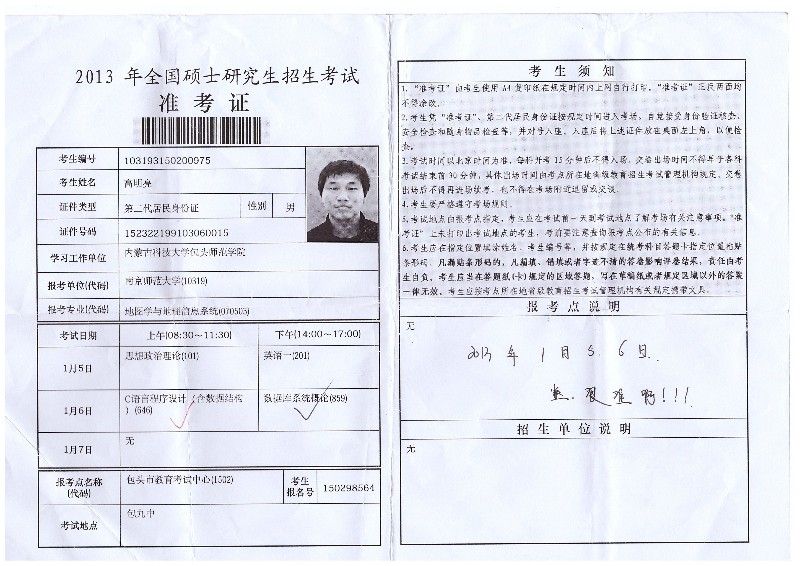 2013 年全国硕士研究生招生考试
准考证
考生编号 103193150200975
考生姓名 高明亮
证件类型 第二代居民身份证 性别 男
证件号码 152322199103060015
学习工作单位 内蒙古科技大学包头师范学院
报考单位(代码) 南京师范大学(10319)
报考专业(代码) 地图学与地理信息系统(070503)
考试日期 上午(08:30～11:30) 下午(14:00～17:00)
1月5日 思想政治理论(101) 英语一(201)
1月6日 C语言程序设计（含数据结构
）(646) 数据库系统概论(859)
1月7日 无
报考点名称
(代码) 包头市教育考试中心(1502) 考生
报名号 150298564
考试地点 包九中
考生须知
1.“准考证”由考生使用A4复印纸在规定时间内上网自行打印。“准考证”正反两面均
不得涂改。
2.考生凭“准考证”、第二代居民身份证按规定时间进入考场，自觉接受身份验证核查、
安全检查和随身物品检查等，并对号入座。入座后将上述证件放在桌面左上角，以便检
查。
3.考试时间以北京时间为准。每科开考15分钟后不得入场。交卷出场时间不得早于各科
考试结束前30分钟，具体出场时间由考点所在地省级教育招生考试管理机构规定。交卷
出场后不得再进场续考，也不得在考场附近逗留或交谈。
4.考生要严格遵守考场规则。
5.考试地点由报考点指定，考生应在考试前一天到考试地点了解考场有关注意事项。“准考
证”上未打印出考试地点的考生，考前要注意查询报考点公布的有关信息。
6.考生应在指定位置填涂姓名、考生编号等，并按规定在统考科目答题卡指定位置粘贴
条形码。凡漏贴条形码的、凡漏填、错填或者字迹不清的答卷影响评卷结果，责任由考
生自负。考生应当在答题纸(卡)规定的区域答题，写在草稿纸或者规定区域以外的答案
一律无效。考生应按考点所在地省级教育招生考试管理机构有关规定携带文具。
报考点说明
无
2013 年 1月 5、6日.
难啊!!!
招生单位说明
无